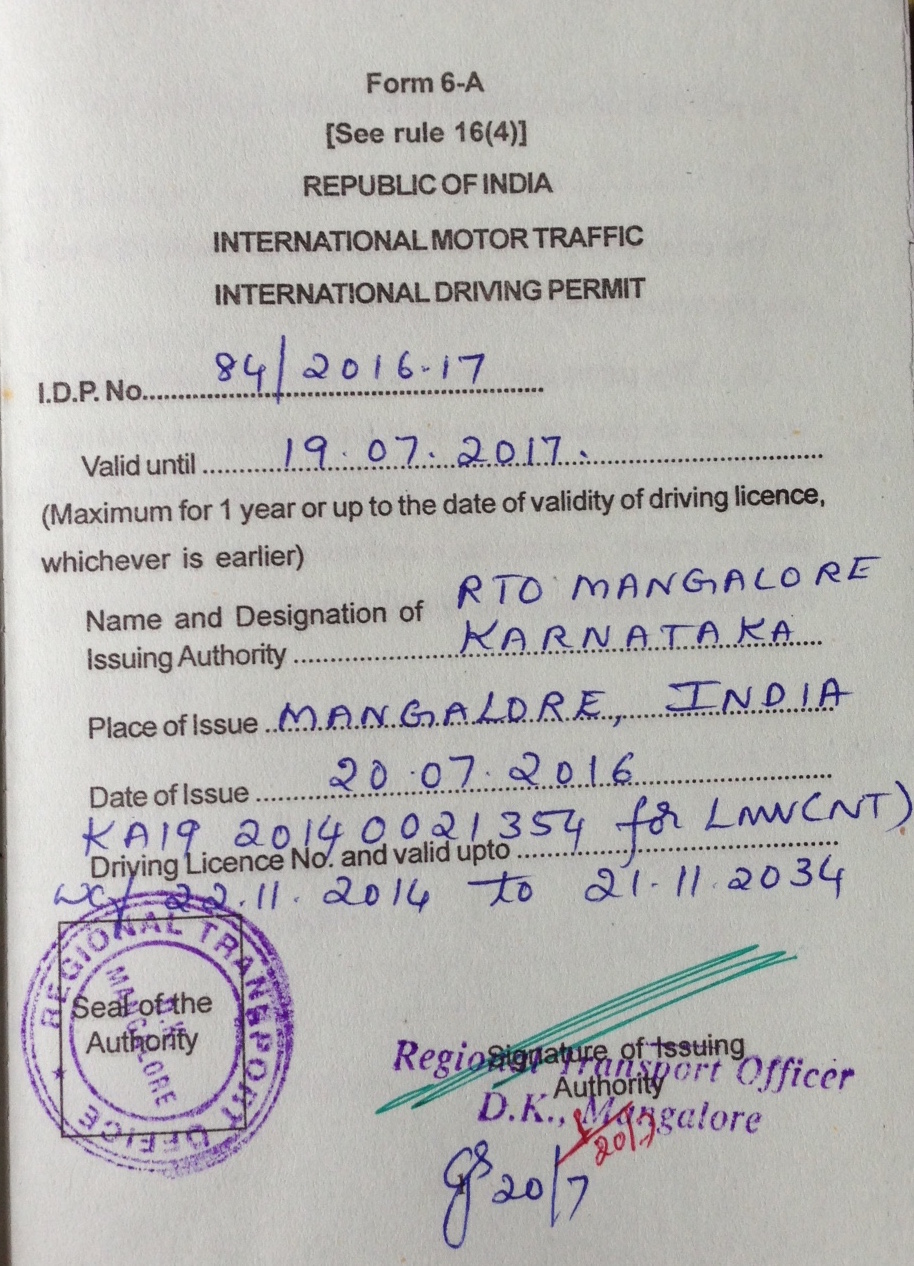 Form 6-A
[See rule 16(4)]
REPUBLIC OF INDIA
INTERNATIONAL MOTOR TRAFFIC
INTERNATIONAL DRIVING PERMIT
I.D.P. No. 84/2016-17
Valid until 19.07.2017.
(Maximum for 1 year or up to the date of validity of driving licence,
whichever is earlier)
RTO MANGALORE
Name and Designation of
Issuing Authority KARNATAKA
Place of Issue MANGALORE, INDIA
Date of Issue 20.07.2016
KA19 20140021354 for LMV(NT)
Driving Licence No. and valid upto
22.11.2014 to 21.11.2034
REGIONAL TRANSPORT OFFICE
MANGALORE
Seal of the
Authority
Signature of Issuing
Authority
Regional Transport Officer
D.K., Mangalore
20/7
20/7